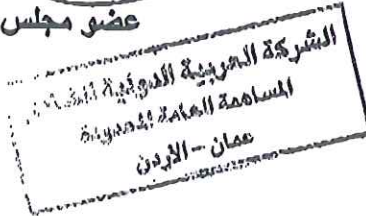 عضو مجلس
الشركة العربية الدولية
المساهمة العامة المحدودة
عمان - الأردن